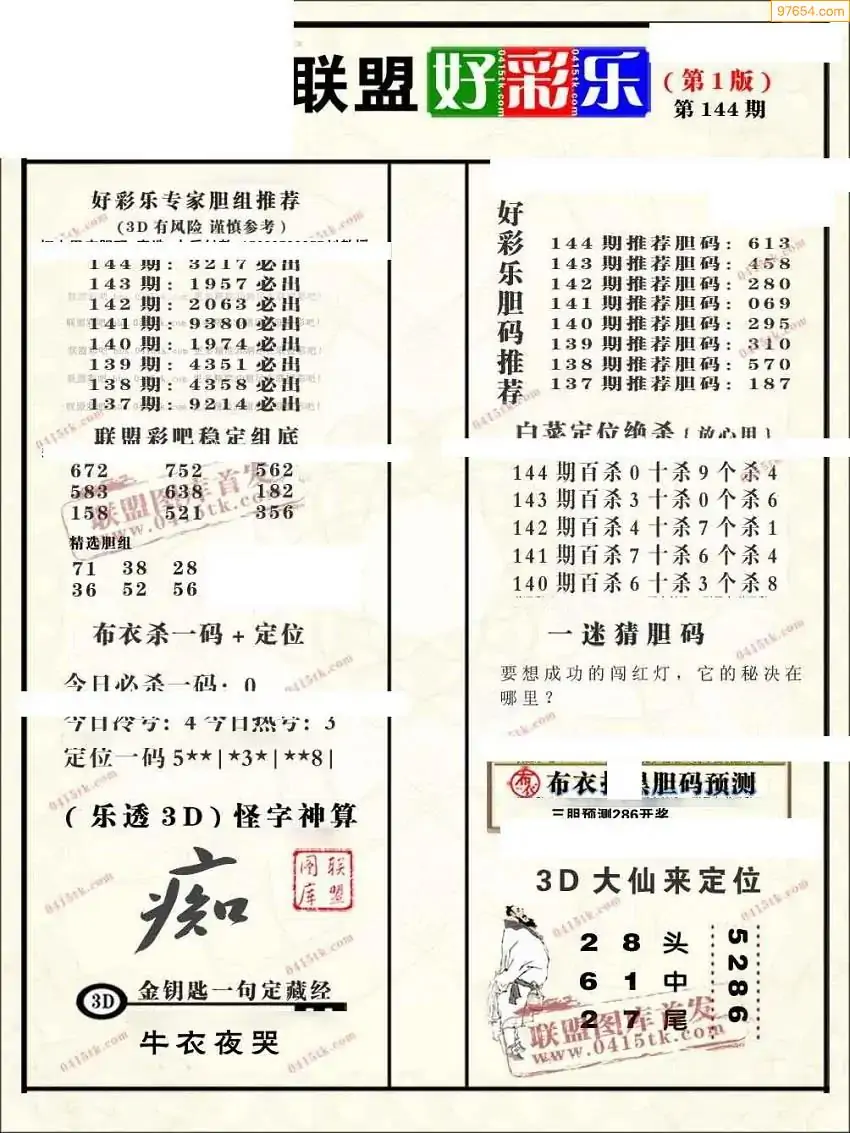 97654.com
联盟好彩乐
(第1版)
第144期
好彩乐专家胆组推荐
(3D有风险 谨慎参考)
144期: 3217必出
143期: 1957必出
142期: 2063必出
141期: 9380必出
140期: 1974必出
139期: 4351必出
138期: 4358必出
137期: 9214必出
联盟彩吧稳定组底
672 752 562
583 638 182
158 521 356
精选胆组
71 38 28
36 52 56
布衣杀一码+定位
今日必杀一码: 0
今日冷号: 4 今日热号: 3
定位一码 5**|*3*|**8|
(乐透3D)怪字神算
痴
联盟图库
3D 金钥匙一句定藏经
牛衣夜哭
好彩乐胆码推荐
144期推荐胆码: 613
143期推荐胆码: 458
142期推荐胆码: 280
141期推荐胆码: 069
140期推荐胆码: 295
139期推荐胆码: 310
138期推荐胆码: 570
137期推荐胆码: 187
白菜定位绝杀{放心用}
144期百杀0十杀9个杀4
143期百杀3十杀0个杀6
142期百杀4十杀7个杀1
141期百杀7十杀6个杀4
140期百杀6十杀3个杀8
一迷猜胆码
要想成功的闯红灯，它的秘决在
哪里？
布衣
胆码预测
三胆预测286开奖
3D大仙来定位
2 8 头
6 1 中
2 7 尾
5286
联盟图库首发
www.0415tk.com
联盟图库首发
www.0415tk.com
0415tk.com